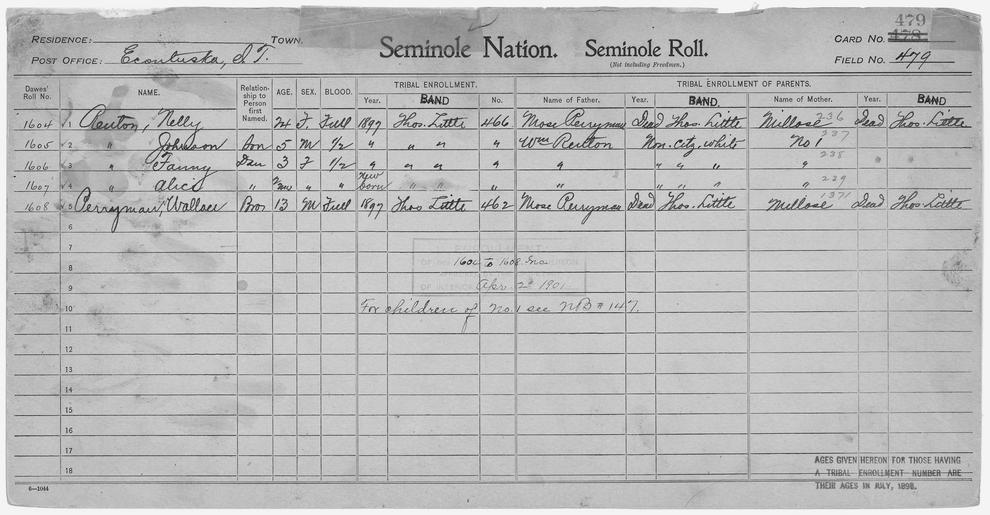 479
RESIDENCE: TOWN. Seminole Nation. Seminole Roll. CARD NO. 478
(Not including Freedmen.)
POST OFFICE: Econtuska, I.T. FIELD NO. 479
TRIBAL ENROLLMENT. TRIBAL ENROLLMENT OF PARENTS.
Dawes' Roll No. NAME. Relationship to Person first Named. AGE. SEX. BLOOD. Year. BAND No. Name of Father. Year. BAND. Name of Mother. Year. BAND
1604 1 Renton, Nelly 24 F. Full 1897 Thos. Little 466 Mose Perryman Dead Thos. Little Millose 236 Dead Thos. Little
1605 2 " Johnson Son 5 M 1/2 " " " " Wm Renton Non. Citz. white No 1 237
1606 3 " Fanny Dau 3 F 1/2 " " " " " " " " " 238
1607 4 " Alice " New " " New born " " " " " " " " 239
1608 5 Perryman, Wallace Bro 13 M Full 1897 Thos Little 462 Mose Perryman Dead Thos. Little Millose 1371 Dead Thos. Little
6
7 ENROLLMENT
8 1604 to 1608 Inc
9 Apr 2 1901
10 For children of No. 1 see NB # 147.
11
12
13
14
15
16
17
18
AGES GIVEN HEREON FOR THOSE HAVING
A TRIBAL ENROLLMENT NUMBER ARE
THEIR AGES IN JULY, 1898.
6—1044